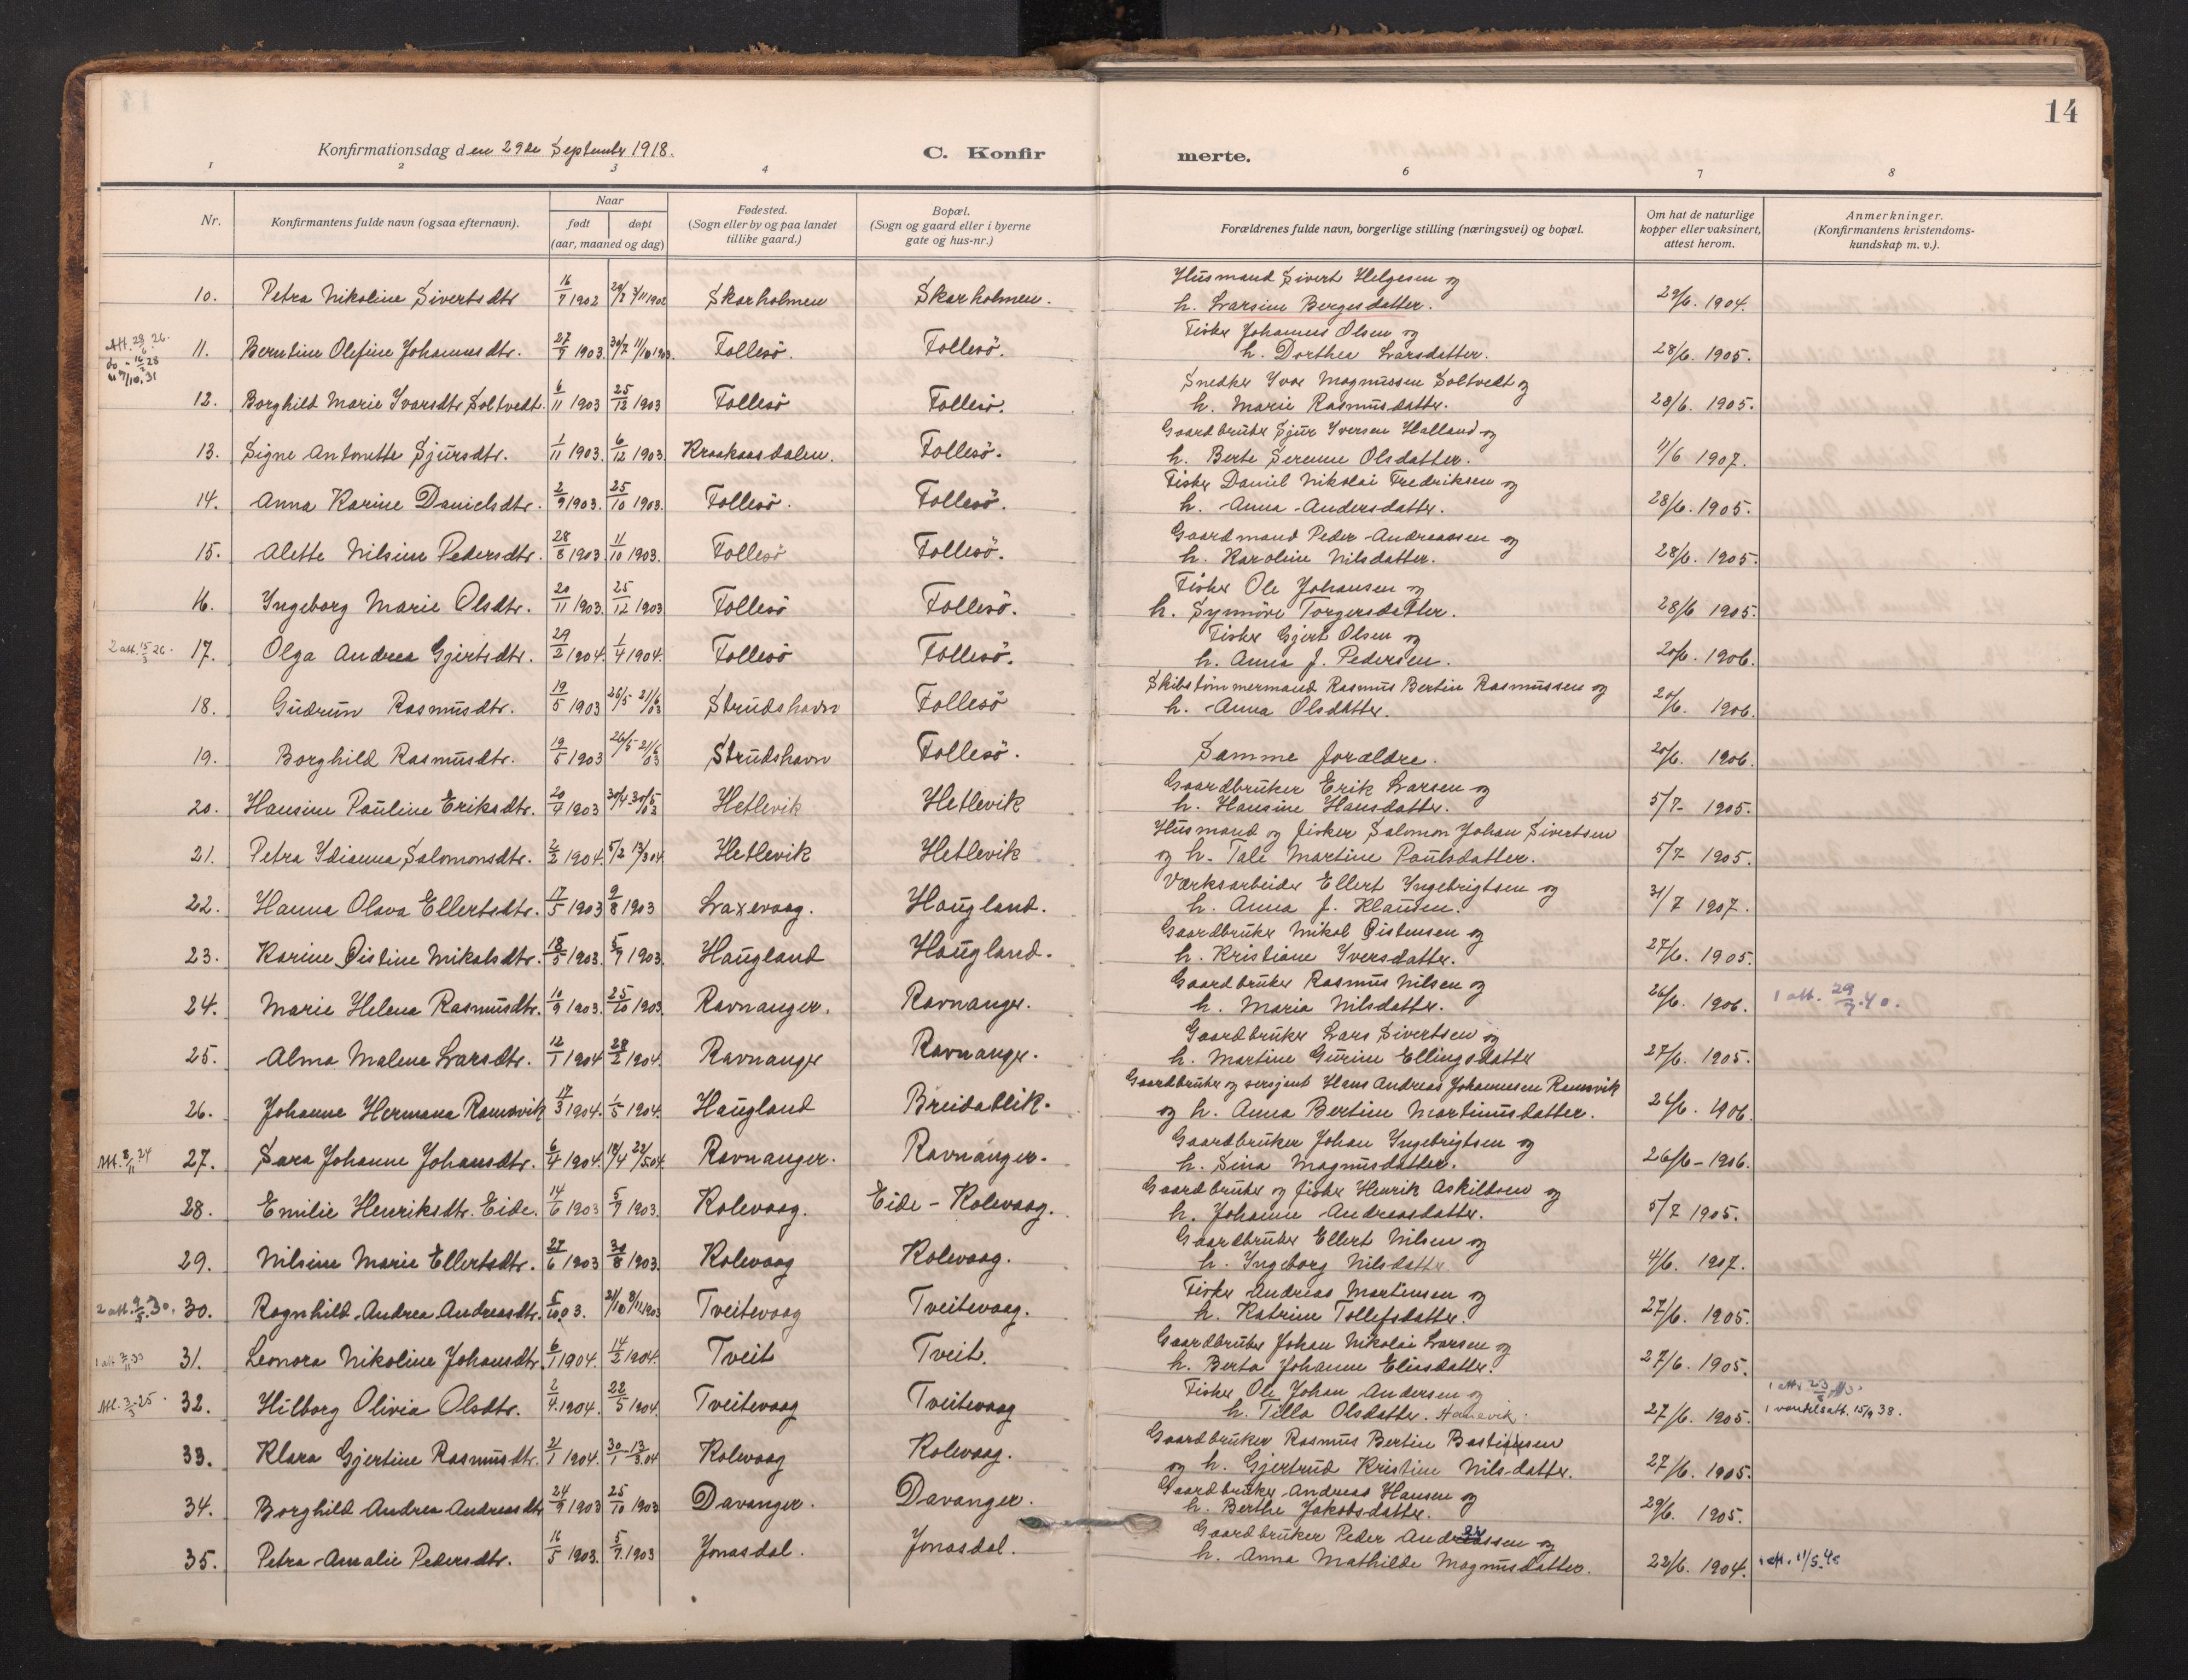 14
Konfirmationsdag den 29de September 1918.
C. Konfir
merte.
1 2 3 4 6 7 8
Nr.
Konfirmantens fulde navn (ogsaa efternavn).
Naar
født
døpt
(aar, maaned og dag)
Fødested.
(Sogn eller by og paa landet
tillike gaard.)
Bopæl.
(Sogn og gaard eller i byerne
gate og hus-nr.)
Forældrenes fulde navn, borgerlige stilling (næringsvei) og bopæl.
Om hat de naturlige
kopper eller vaksinert,
attest herom.
Anmerkninger.
(Konfirmantens kristendoms-
kundskap m. v.).
10. Petra Nikoline Sivertsdtr 16/7 1902 29/7 2/11 1902 Skarholmen Skarholmen. Husmand Sivert Helgesen og
h. Larsine Bergesdatter. 29/6. 1904.
11. Berntine Olefine Johannesdtr. 27/7 1903. 30/7 11/10 1903. Follesö. Follesö. Fisker Johannes Olsen og
h. Dorthea Larsdatter. 28/6. 1905.
12. Borghild Marie Ivarsdtr Soltvedt. 6/11 1903 25/12 1903 Follesö Follesö. Snedker Ivar Magnussen Soltvedt og
h. Marie Rasmusdatter. 28/6. 1905.
13. Signe Antonette Sjursdtr. 1/11 1903. 6/12 1903. Kraakaasdalen. Follesö. Gaardbruker Sjur Iversen Halland og
h. Berte Serenne Olsdatter. 11/6 1907.
14. Anna Karine Danielsdtr. 2/9 1903. 25/10 1903. Follesö. Follesö. Fisker Daniel Nikolai Fredriksen og
h. Anna Andersdatter. 28/6. 1905.
15. Alette Nilsine Pedersdtr. 28/8 1903. 11/10 1903. Follesö Follesö. Gaardmand Peder Andreassen og
h. Karoline Nilsdatter. 28/6. 1905.
16. Ingeborg Marie Olsdtr. 20/11 1903. 25/12 1903 Follesö Follesö. Fisker Ole Johansen og
h. Synnöve Torgersdatter. 28/6 1905.
2 att. 15/3 26. 17. Olga Andrea Gjertsdtr. 29/2 1904. 1/4 1904. Follesö Follesö. Fisker Gjert Olsen og
h. Anna J. Pedersen. 20/6. 1906.
18. Gudrun Rasmusdtr. 19/5 1903 26/5 21/6 03 Strudshavn Follesö Skibstömmermand Rasmus Bertin Rasmussen og
h. Anna Olsdatter. 20/6. 1906.
19. Borghild Rasmusdtr. 19/5 1903 26/5 21/6 03 Strudshavn Follesö. Samme forældre. 20/6. 1906.
20. Hansine Pauline Eriksdtr. 20/4 1903 30/4 30/5 03 Hetlevik Hetlevik Gaardbruker Erik Larsen og
h. Hansine Hansdatter. 5/7 1905.
21. Petra Idianna Salomonsdtr. 2/2 1904. 5/2 13/3 04. Hetlevik Hetlevik Husmand og fisker Salomon Johan Sivertsen
og h. Tale Martine Paulsdatter. 5/7 1905.
22. Hanna Olava Ellertsdtr. 17/5 1903 9/8 1903 Laxevaag. Haugland. Værksarbeider Ellert Ingebrigtsen og
h. Anna J. Klausen. 31/7 1907.
23. Karine Qistine Mikalsdtr. 18/5 1903. 5/7 1903. Haugland Haugland. Gaardbruker Mikal Qistensen og
h. Kristiane Iversdatter. 27/6. 1905.
24. Marie Helena Rasmusdtr. 10/9 1903. 25/10 1903. Ravnanger. Ravnanger. Gaardbruker Rasmus Nilsen og
h. Maria Nilsdatter. 26/6. 1906. 1 att. 29/3.40.
25. Alma Malene Larsdtr. 12/1 1904 28/2 1904. Ravnanger Ravnanger. Gaardbruker Lars Sivertsen og
h. Martine Gurine Ellingsdatter 27/6. 1905.
26. Johanne Hermana Ramsvik 17/3 1904. 1/5 1904. Haugland Breidablik. Gaardbruker og sersjant Hans Andreas Johannesen Ramsvik
og h. Anna Bertine Martinusdatter. 26/6. 1906.
Att. 8/11 24 27. Sara Johanne Johansdtr. 6/4 1904. 18/4 22/5 04. Ravnanger. Ravnanger. Gaardbruker Johan Ingebrigtsen og
h. Sina Magnusdatter. 26/6 - 1906.
28. Emilie Henriksdtr. Eide. 14/6 1903 5/9 1903. Kolevaag. Eide - Kolevaag. Gaardbruker og fisker Henrik Askildsen og
h. Johanne Andreasdatter. 5/7 1905.
29. Nilsine Marie Ellertsdtr. 27/6 1903 30/8 1903. Kolevaag Kolevaag. Gaardbruker Ellert Nilsen og
h. Ingeborg Nilsdatter 4/6. 1907.
2 att. 9/5.30. 30. Ragnhild Andrea Andreasdtr. 5/10 03. Tveitevaag Tveitevaag. Fisker Andreas Martinsen og
h. Katrine Tollefsdatter. 27/6. 1905.
31. Leonora Nikoline Johansdtr. 6/1 1904. 14/2 1904. Tveit Tveit. Gaardbruker Johan Nikolai Larsen og
h. Berta Johanne Eliasdatter. 27/6. 1905.
Att. 3/3 25. 32. Hilborg Olivia Olsdtr. 2/4. 1904. 22/5 1904. Tveitevaag Tveitevaag Fisker Ole Johan Andersen og
h. Tilla Olsdatter. Hanevik. 27/6. 1905. 1 vandelsatt. 15/9 38.
33. Klara Gjertine Rasmusdtr. 21/1 1904. 30/1 - 13/3 04 Kolevaag Kolevaag. Gaardbruker Rasmus Bertin Bastiansen
og h. Gjertrud Kristine Nilsdatter. 27/6. 1905.
34. Borghild Andrea Andreasdtr 24/9 1903 25/10 1903 Davanger. Davanger. Gaardbruker Andreas Hansen og
h. Berthe Jakobsdatter. 29/6. 1905.
35. Petra Amalie Pedersdtr. 16/5 1903. 5/7. 1903 Jonasdal. Jonasdal. Gaardbruker Peder Andreassen og
h. Anna Mathilde Magnusdatter. 22/6. 1904. 1 att. 11/5.48